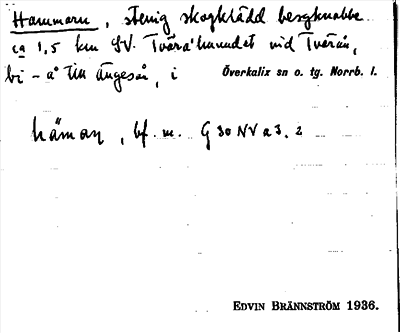 Hammarn, stenig skogklädd bergknabbe
ca 1,5 km SV. Tvärå'hammdet vid Tvärån,
bi-å till Ängesån, i Överkalix sn o. tg. Norrb. l.
håman, bf. m. G 30 NV a 3. 2
EDVIN BRÄNNSTRÖM 1936.